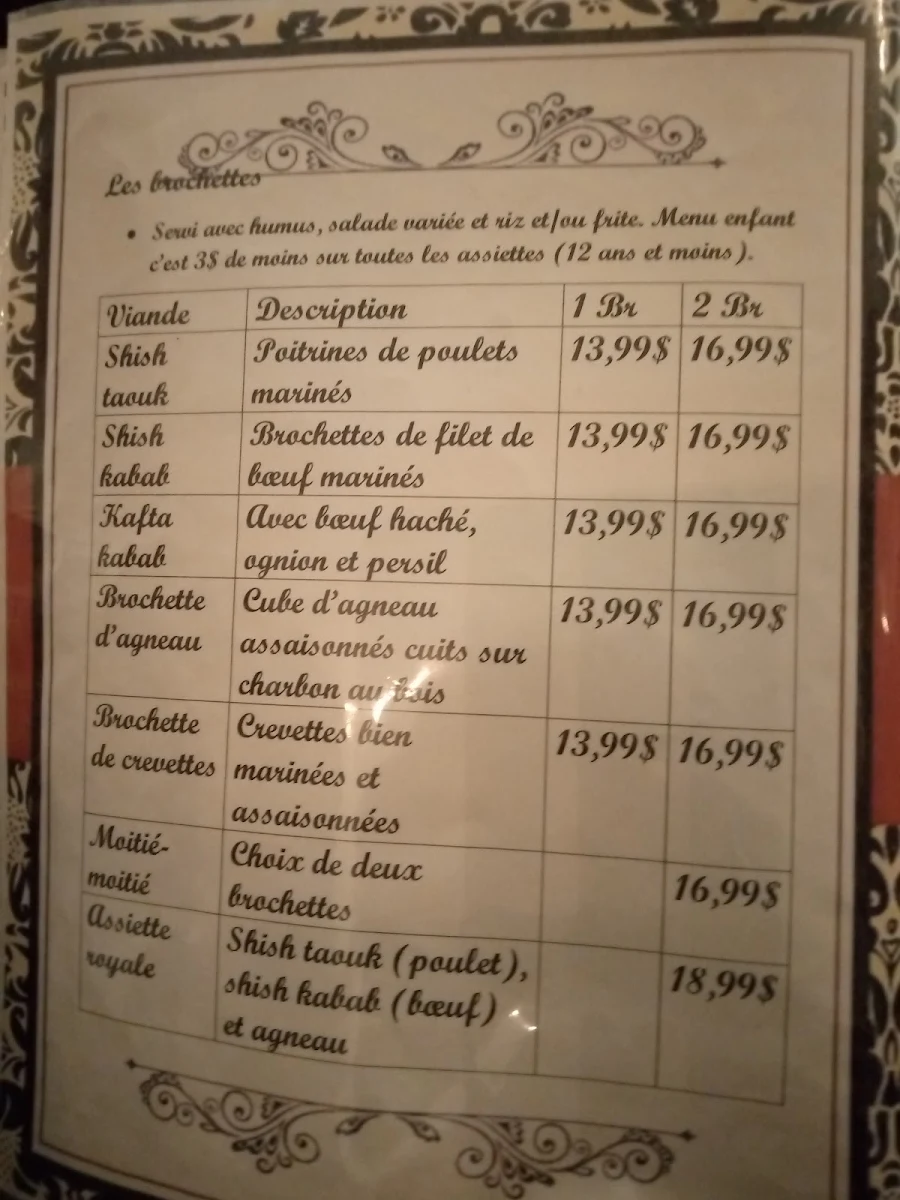 Les brochettes
• Servi avec humus, salade variée et riz et/ou frite. Menu enfant
c'est 3$ de moins sur toutes les assiettes (12 ans et moins).
Viande Description 1 Br 2 Br
Shish Poitrines de poulets 13,99$ 16,99$
taouk marinés
Shish Brochettes de filet de 13,99$ 16,99$
kabab bœuf marinés
Kafta Avec bœuf haché, 13,99$ 16,99$
kabab ognion et persil
Brochette Cube d'agneau 13,99$ 16,99$
d'agneau assaisonnés cuits sur
charbon au bois
Brochette Crevettes bien 13,99$ 16,99$
de crevettes marinées et
assaisonnées
Moitié- Choix de deux 16,99$
moitié brochettes
Assiette Shish taouk (poulet), 18,99$
royale shish kabab (bœuf)
et agneau